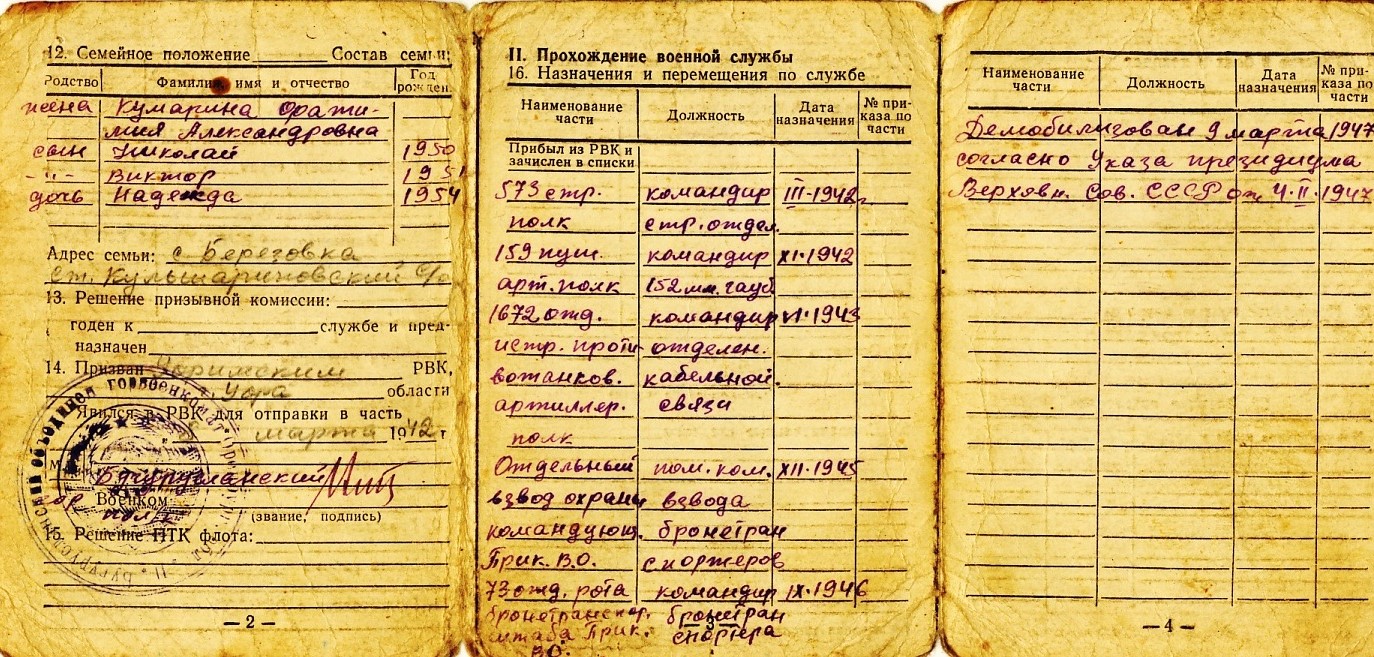 12. Семейное положение Состав семьи:
Родство Фамилия, имя и отчество Год рожден.
жена Кумарина Фати-
мия Александровна
сын Николай 1950
-"- Виктор 195
дочь Надежда 1954
Адрес семьи: с Березовка
ст.
13. Решение призывной комиссии:
годен к службе и пред-
назначен
14. Призван РВК,
г. Уфа области
Явился в РВК для отправки в часть
марта 1942 г
Бугурусланский
гор Военком
полк (звание, подпись)
15. Решение ПТК флота:
— 2 —
II. Прохождение военной службы
16. Назначения и перемещения по службе
Наименование части Должность Дата назначения № при-каза по части
Прибыл из РВК и
зачислен в списки
573 стр. командир III-1942г.
полк стр. отдел.
159 пуш. командир XI-1942
арт. полк 152 мм. гауб
1672 отд. командир VI-1943
истр. проти- отделен.
вотанков. кабельной
артиллер. связи
полк
Отдельный пом. ком. XII-1945
взвод охраны взвода
командующ. бронетран
Прик. В.О. спортеров
73 отд. рота командир IX-1946
бронетранспор. бронетран
штаба Прик. спортера
В.О.
Наименование части Должность Дата назначения № при-каза по части
Демобилизован 9 марта 1947
согласно Указа президиума
Верховн. Сов. СССР от 4.II.1947
— 4 —